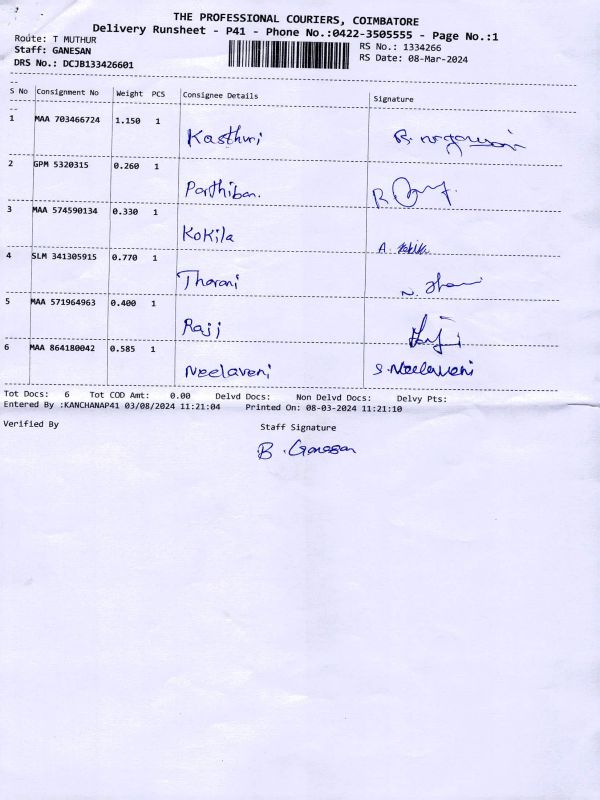 THE PROFESSIONAL COURIERS, COIMBATORE
Delivery Runsheet - P41 - Phone No.:0422-3505555 - Page No.:1
Route: T MUTHUR
Staff: GANESAN
DRS No.: DCJB133426601
RS No.: 1334266
RS Date: 08-Mar-2024
S No Consignment No Weight PCS Consignee Details Signature
1 MAA 703466724 1.150 1 Kasthuri
2 GPM 5320315 0.260 1 Parthiban.
3 MAA 574590134 0.330 1 Kokila A. Kokila
4 SLM 341305915 0.770 1 Tharani
5 MAA 571964963 0.400 1 Raji
6 MAA 864180042 0.585 1 Neelaveni S. Neelaveni
Tot Docs: 6 Tot COD Amt: 0.00 Delvd Docs: Non Delvd Docs: Delvy Pts:
Entered By :KANCHANAP41 03/08/2024 11:21:04 Printed On: 08-03-2024 11:21:10
Verified By Staff Signature
B. Ganesan